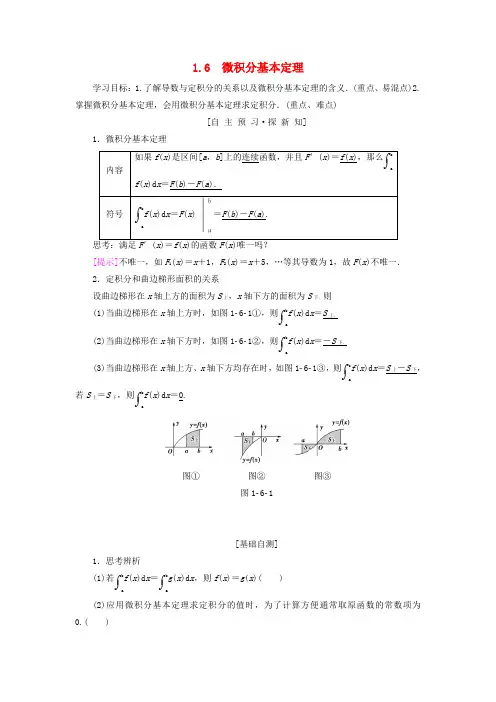 1.6 微积分基本定理
学习目标：1.了解导数与定积分的关系以及微积分基本定理的含义.(重点、易混点)2.
掌握微积分基本定理，会用微积分基本定理求定积分.(重点、难点)
[自 主 预 习·探 新 知]
1．微积分基本定理
内容 如果f(x)是区间[a，b]上的连续函数，并且F′(x)＝f(x)，那么∫ₐᵇ
f(x)dx＝F(b)－F(a).
符号 ∫ₐᵇf(x)dx＝F(x)|ₐᵇ＝F(b)－F(a).
思考：满足F′(x)＝f(x)的函数F(x)唯一吗？
[提示]不唯一，如F₁(x)＝x＋1，F₂(x)＝x＋5，…等其导数为1，故F(x)不唯一.
2．定积分和曲边梯形面积的关系
设曲边梯形在x轴上方的面积为S上，x轴下方的面积为S下.则
(1)当曲边梯形在x轴上方时，如图1-6-1①，则∫ₐᵇf(x)dx＝S上.
(2)当曲边梯形在x轴下方时，如图1-6-1②，则∫ₐᵇf(x)dx＝－S下.
(3)当曲边梯形在x轴上方、x轴下方均存在时，如图1-6-1③，则∫ₐᵇf(x)dx＝S上－S下，
若S上＝S下，则∫ₐᵇf(x)dx＝0.
y y=f(x) S上 O a b x
y a b O x S下 y=f(x)
y y=f(x) a S下 O S上 b x
图① 图② 图③
图1-6-1
[基础自测]
1．思考辨析
(1)若∫ₐᵇf(x)dx＝∫ₐᵇg(x)dx，则f(x)＝g(x)( )
(2)应用微积分基本定理求定积分的值时，为了计算方便通常取原函数的常数项为
0.( )